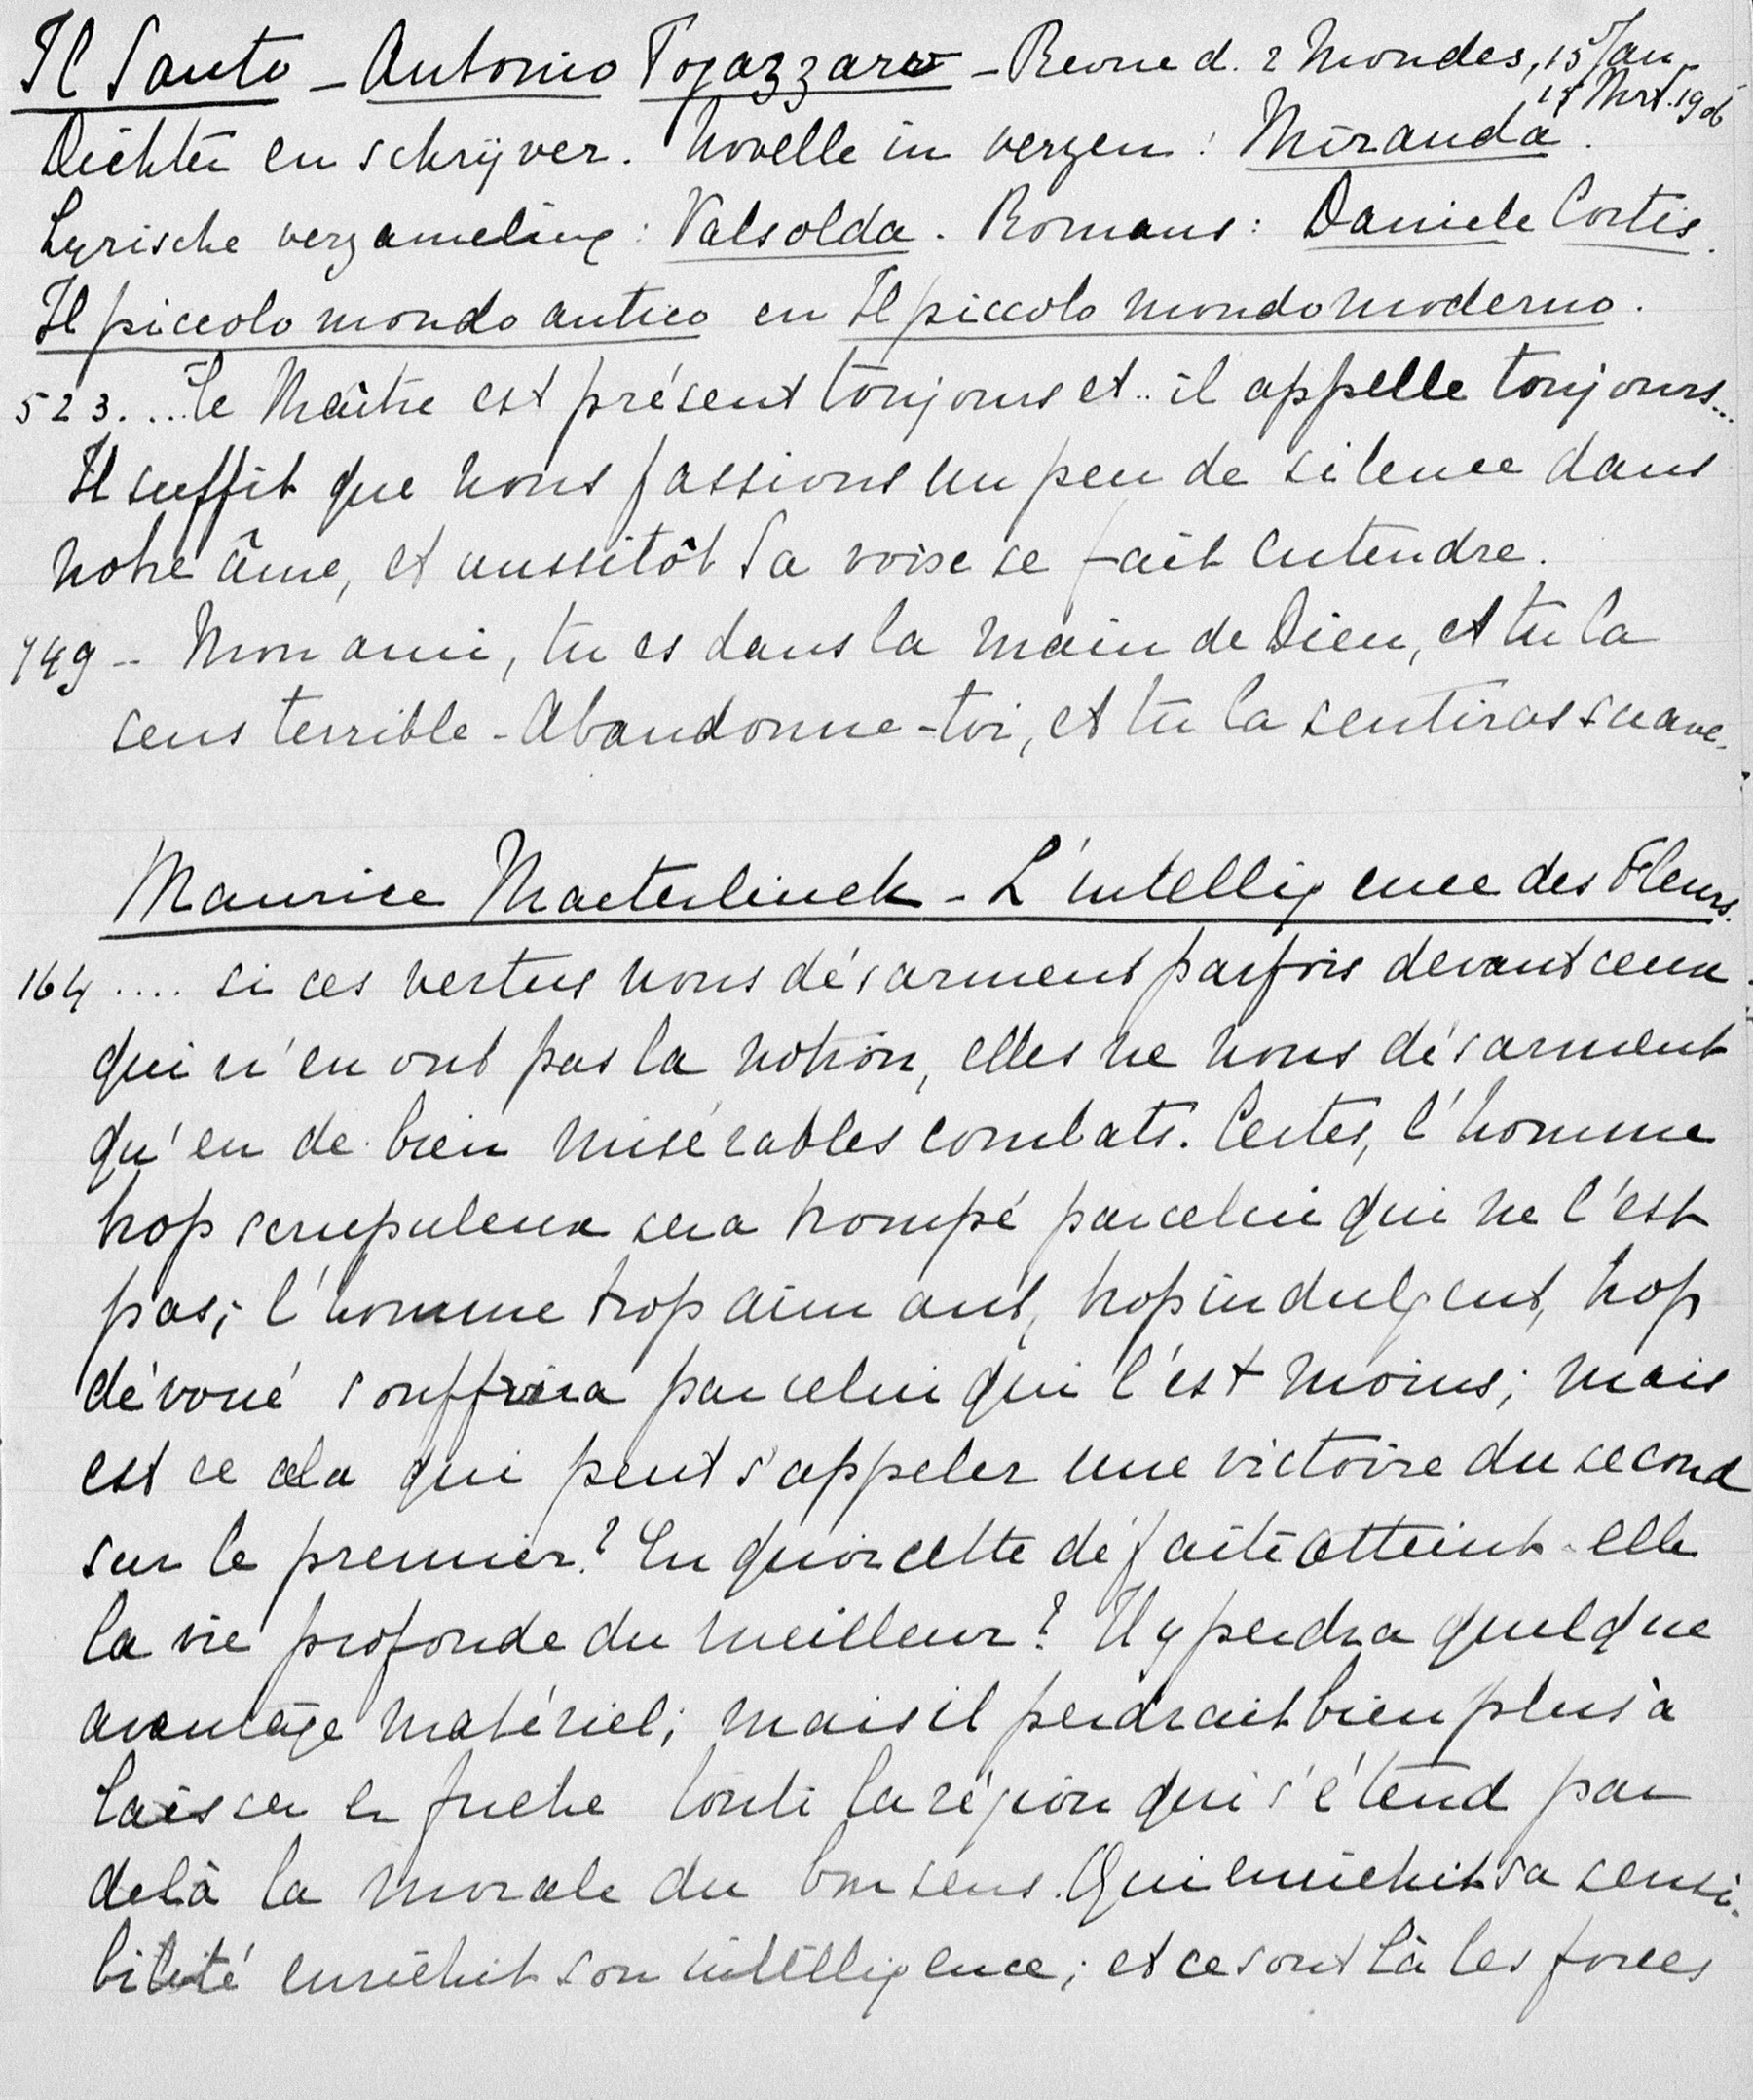 Il Santo - Antonio Fogazzaro - Revue d. 2 Mondes, 15 Jan -
15 Mrt. 1906
Dichter en schrijver. Novelle in verzen: Miranda.
Lyrische verzameling: Valsolda. Romans: Daniele Cortis.
Il piccolo mondo antico en Il piccolo mondo moderno.
523. ... le Maître est présent toujours et .. il appelle toujours...
Il suffit que nous fassions un peu de silence dans
notre âme, et aussitôt Sa voix se fait entendre.
749 -- Mon ami, tu es dans la main de Dieu, et tu la
sens terrible - Abandonne-toi, et tu la sentiras suave.
Maurice Maeterlinck - L'intelligence des Fleurs.
164 .... si ces vertus nous désarment parfois devant ceux
qui n'en ont pas la notion, elles ne nous désarment
qu'en de bien misérables combats. Certes, l'homme
trop scrupuleux sera trompé par celui qui ne l'est
pas; l'homme trop aimant, trop indulgent, trop
dévoué souffrira par celui qui l'est moins; mais
est ce cela qui peut s'appeler une victoire du second
sur le premier? En quoi cette défaite atteint-elle
la vie profonde du meilleur? Il y perdra quelque
avantage matériel; mais il perdrait bien plus à
laisser en friche toute la région qui s'étend par
delà la morale du bon sens. Qui enrichit sa sensi-
bilité enrichit son intelligence; et ce sont là les forces